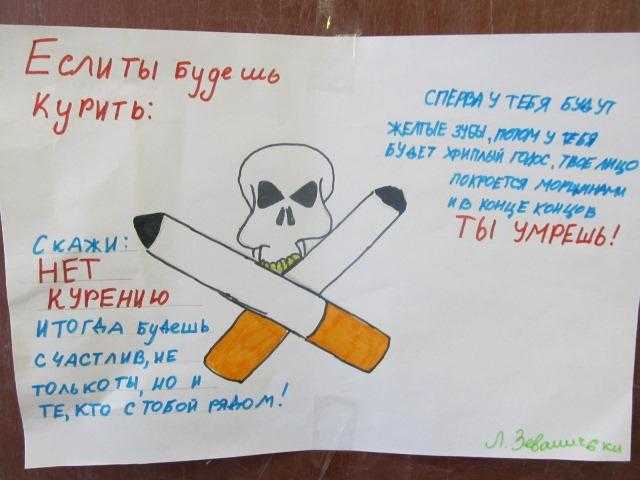 Если ты будешь
курить:
СПЕРВА У ТЕБЯ БУДУТ
ЖЕЛТЫЕ ЗУБЫ, ПОТОМ У ТЕБЯ
БУДЕТ ХРИПЛЫЙ ГОЛОС, ТВОЕ ЛИЦО
ПОКРОЕТСЯ МОРЩИНАМИ
И В КОНЦЕ КОНЦОВ
ТЫ УМРЕШЬ!
СКАЖИ:
НЕТ
КУРЕНИЮ
И ТОГДА БУДЕШЬ
СЧАСТЛИВ, НЕ
ТОЛЬКО ТЫ, НО И
ТЕ, КТО С ТОБОЙ РЯДОМ!
Л.